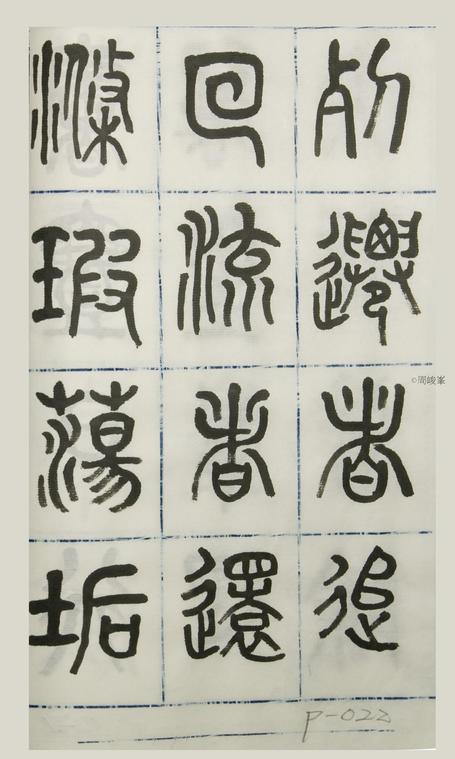 死遷者追
回流者還
滌瑕蕩垢
P-022
©周峻峯